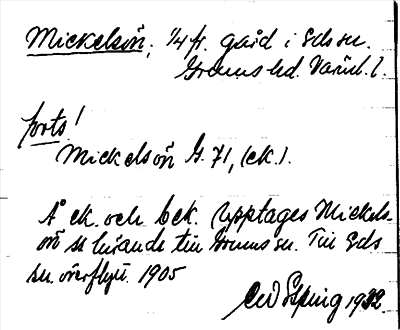 Mickelsön, 1/4 fr. gård i Eds sn.
Grums hd. Värml. l.
forts!
Mickelsön G. 71, (ek.).
Å ek. och bek. upptages Mickels-
ön så lydande till Grums sn. Till Eds
sn. överflytt. 1905
1932